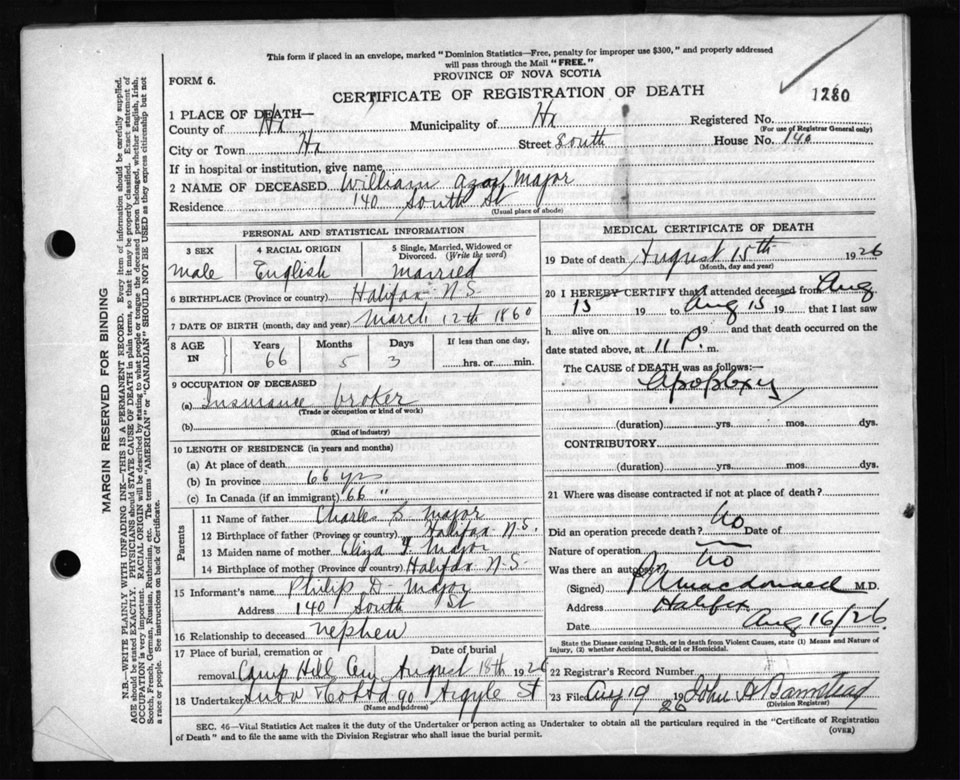 This form if placed in an envelope, marked "Dominion Statistics—Free, penalty for improper use $300," and properly addressed
will pass through the Mail "FREE."
PROVINCE OF NOVA SCOTIA
FORM 6.
CERTIFICATE OF REGISTRATION OF DEATH
1280
1 PLACE OF DEATH—
County of Hx Municipality of Hx Registered No.
(For use of Registrar General only)
City or Town Hx Street South House No. 140
If in hospital or institution, give name
2 NAME OF DECEASED William Major
Residence 140 South St
(Usual place of abode)
PERSONAL AND STATISTICAL INFORMATION
3 SEX 4 RACIAL ORIGIN 5 Single, Married, Widowed or Divorced. (Write the word)
male English married
6 BIRTHPLACE (Province or country) Halifax N.S.
7 DATE OF BIRTH (month, day and year) March 12th 1860
8 AGE IN Years Months Days If less than one day,
66 5 3 hrs. or min.
9 OCCUPATION OF DECEASED
(a) Insurance broker
(Trade or occupation or kind of work)
(b)
(Kind of industry)
10 LENGTH OF RESIDENCE (in years and months)
(a) At place of death
(b) In province 66 yrs
(c) In Canada (if an immigrant) 66 "
Parents
11 Name of father Charles Major
12 Birthplace of father (Province or country) Halifax N.S.
13 Maiden name of mother Eliza Major
14 Birthplace of mother (Province or country) Halifax N.S.
15 Informant's name Philip D. Major
Address 140 South St
16 Relationship to deceased nephew
17 Place of burial, cremation or removal Date of burial
Camp Hill Cem August 18th 1926
18 Undertaker Snow 90 Argyle St
(Name and address)
MEDICAL CERTIFICATE OF DEATH
19 Date of death August 15th 1926
(Month, day and year)
20 I HEREBY CERTIFY that I attended deceased from Aug
15 19 to Aug 15 19 that I last saw
h alive on 19 and that death occurred on the
date stated above, at 11 P. m.
The CAUSE of DEATH was as follows:—
Apoplexy
(duration) yrs. mos. dys.
CONTRIBUTORY
(duration) yrs. mos. dys.
21 Where was disease contracted if not at place of death?
Did an operation precede death? No Date of
Nature of operation
Was there an autopsy? No
(Signed) Macdonald M.D.
Address Halifax
Date Aug 16/26
State the Disease causing Death, or in death from Violent Causes, state (1) Means and Nature of
Injury, (2) whether Accidental, Suicidal or Homicidal.
22 Registrar's Record Number
23 Filed Aug 19 1926 John A Barnstead
(Division Registrar)
SEC. 46—Vital Statistics Act makes it the duty of the Undertaker or person acting as Undertaker to obtain all the particulars required in the "Certificate of Registration
of Death" and to file the same with the Division Registrar who shall issue the burial permit.
(OVER)
MARGIN RESERVED FOR BINDING
N.B.—WRITE PLAINLY WITH UNFADING INK—THIS IS A PERMANENT RECORD. Every item of information should be carefully supplied.
AGE should be stated EXACTLY. PHYSICIANS should STATE CAUSE OF DEATH in plain terms, so that it may be properly classified. Exact statement of
OCCUPATION is very important. RACIAL ORIGIN will be described by stating to what people or tongue the deceased person belonged, whether English, Irish,
Scotch, French, German, Russian, Ruthenian, etc. The terms "AMERICAN" or "CANADIAN" SHOULD NOT BE USED as they express citizenship but not
a race or people. See instructions on back of Certificate.